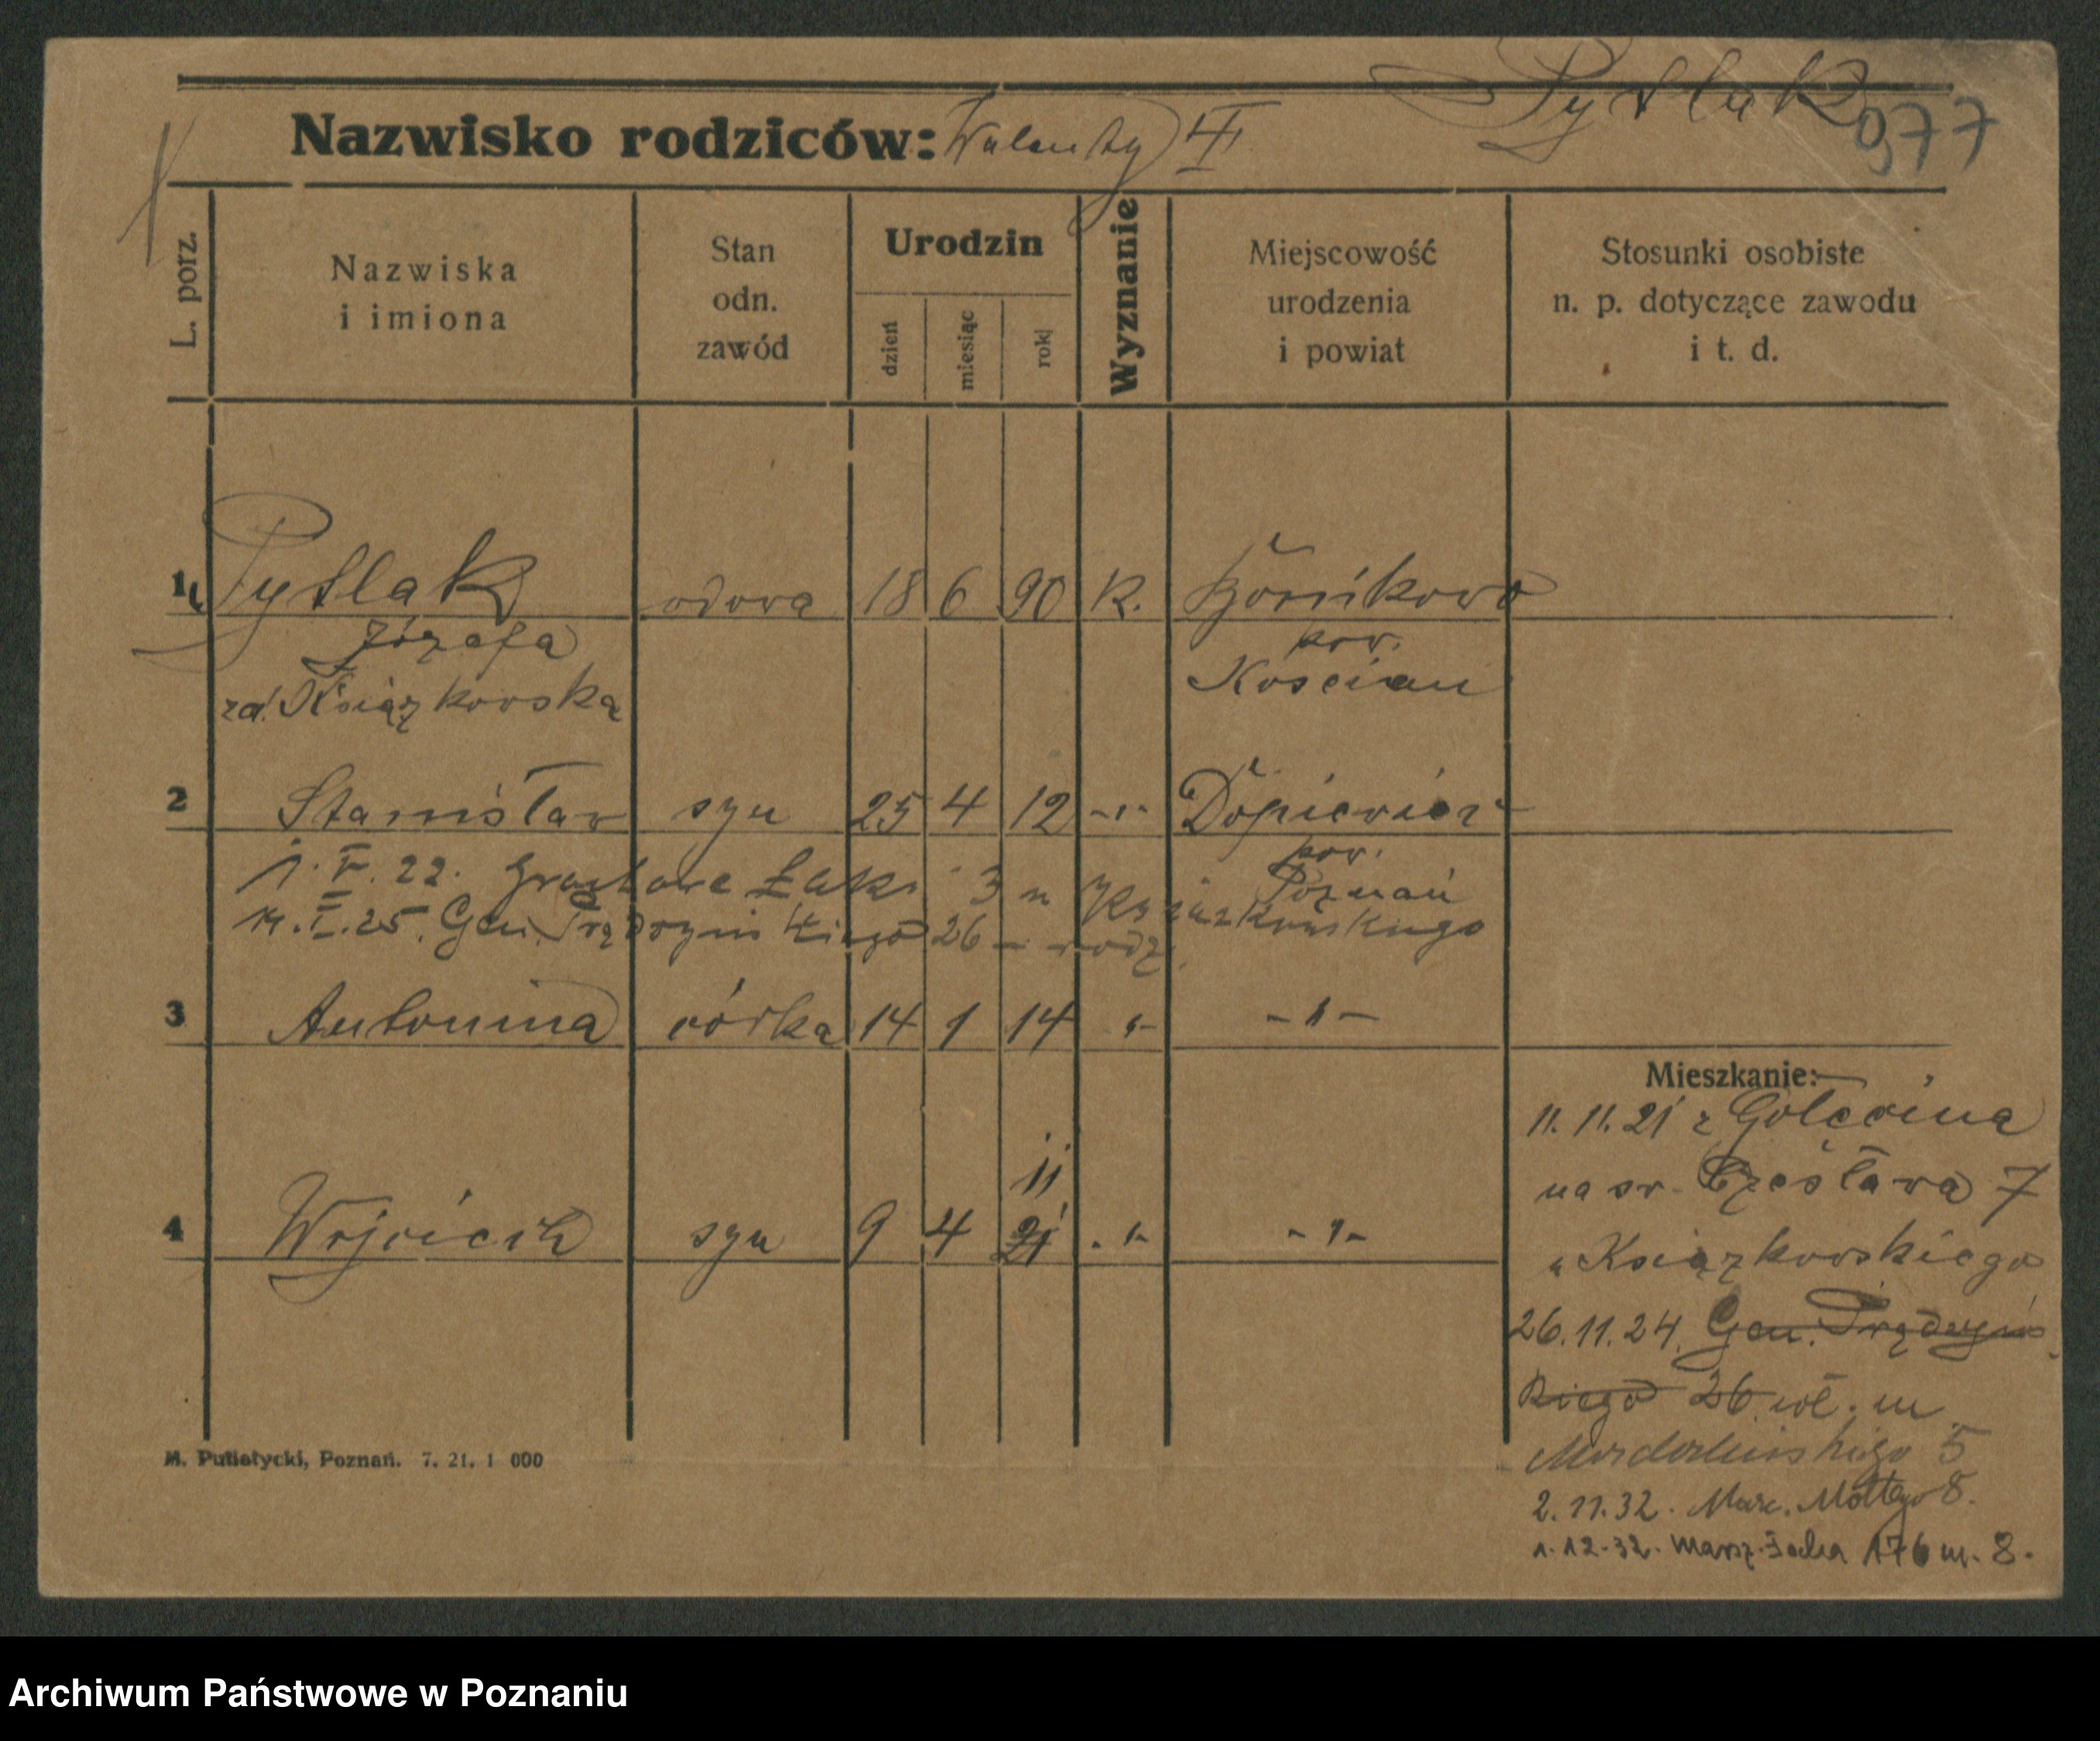 Pytlak
977
Nazwisko rodziców: Walenty II
L. porz.
Nazwiska
i imiona
Stan
odn.
zawód
Urodzin
dzień
miesiąc
rok
Wyznanie
Miejscowość
urodzenia
i powiat
Stosunki osobiste
n. p. dotyczące zawodu
i t. d.
1 Pytlak wdowa 18 6 90 K.
Józefa pow.
zd. Książkowska Kościan
2 Stanisław syn 25 4 12 -"- Dopiewiec
pow.
Poznań
1. V. 22. Łąki 3 u Książkowskiego
14. I. 25. Gen. Prądzyńskiego 26 - rodz.
3 Antonina córka 14 1 14 " -"-
Mieszkanie:
11. 11. 21 z Golęcina
na św. Czesława 7
11
4 Wojciech syn 9 4 21 -"- -"-
u Książkowskiego
26. 11. 24. Gen. Prądzyńs
kiego 26 wł. m
5
2. 11. 32. Marc. Mottego 8.
1. 12. 32. Marsz. Focha 176 m. 8.
M. Putiatycki, Poznań. 7. 21. 1 000
Archiwum Państwowe w Poznaniu